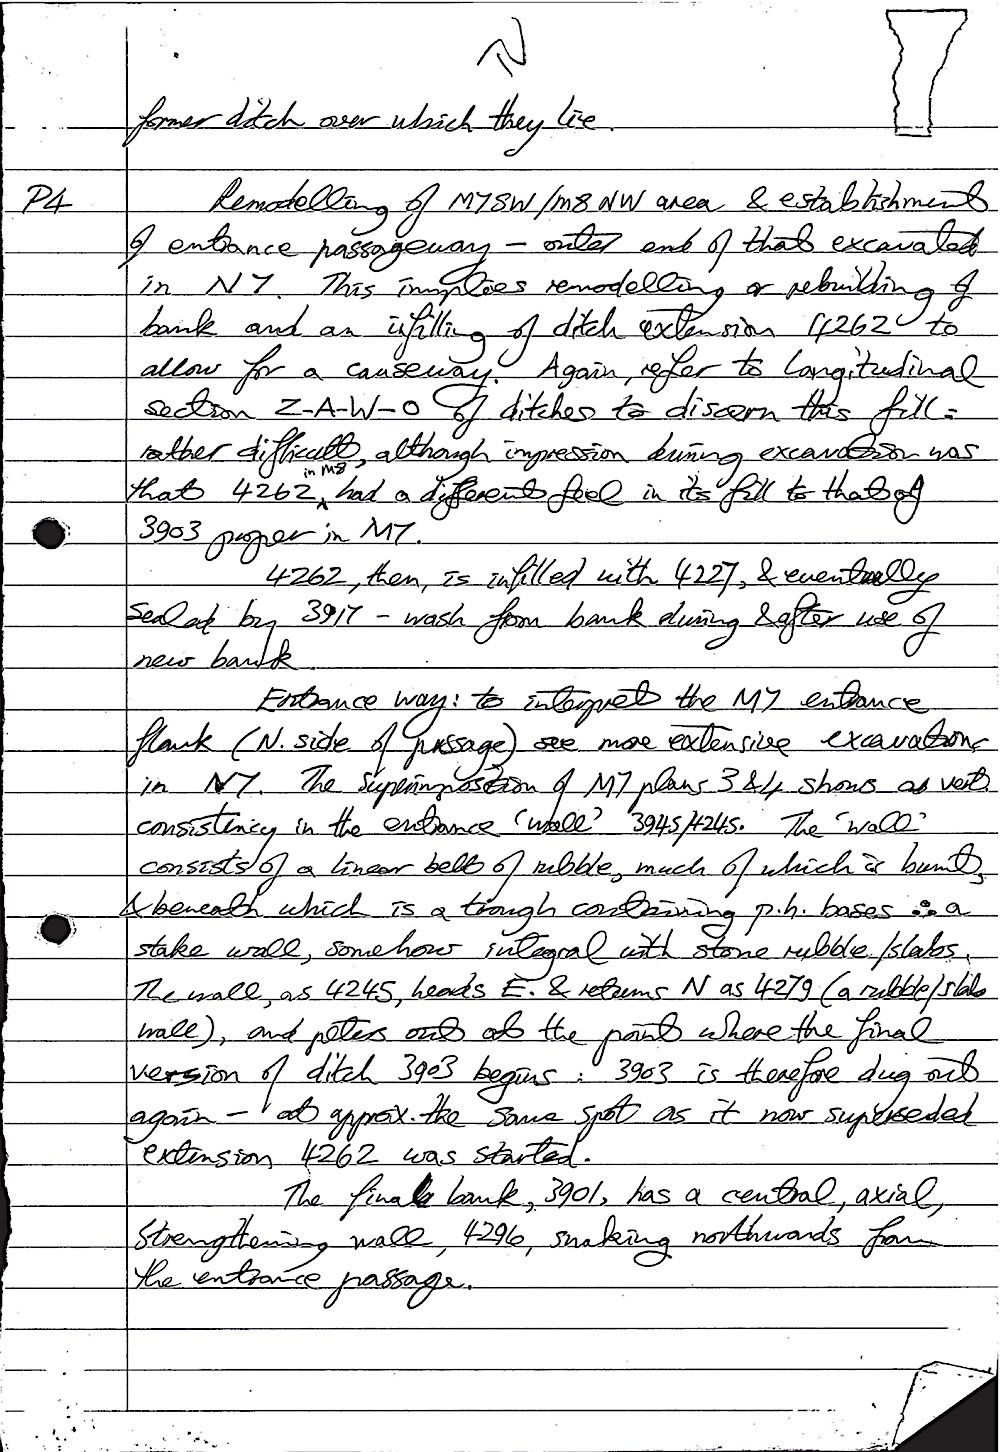 former ditch over which they lie.
P4 Remodelling of M7SW/M8NW area & establishment
of entrance passageway – outer end of that excavated
in N7. This implies remodelling or rebuilding of
bank and an infilling of ditch extension 4262 to
allow for a causeway. Again, refer to longitudinal
section Z-A-W-O of ditches to discern this fill:
rather difficult, although impression during excavation was
that 4262 in M8 had a different feel in its fill to that of
3903 proper in M7.
4262, then, is infilled with 4227, & eventually
sealed by 3917 – wash from bank during & after use of
new bank.
Entrance way: to interpret the M7 entrance
flank (N. side of passage) see more extensive excavations
in N7. The superimposition of M7 plans 3&4 shows a vert.
consistency in the entrance 'wall' 3945/4245. The 'wall'
consists of a linear belt of rubble, much of which is burnt,
& beneath which is a trough containing p.h. bases ∴ a
stake wall, somehow integral with stone rubble/slabs.
The wall, as 4245, heads E. & returns N as 4279 (a rubble/slab
wall), and peters out at the point where the final
version of ditch 3903 begins: 3903 is therefore dug out
again – at approx. the same spot as it now superseded
extension 4262 was started.
The final bank, 3901, has a central, axial,
strengthening wall, 4296, snaking northwards from
the entrance passage.